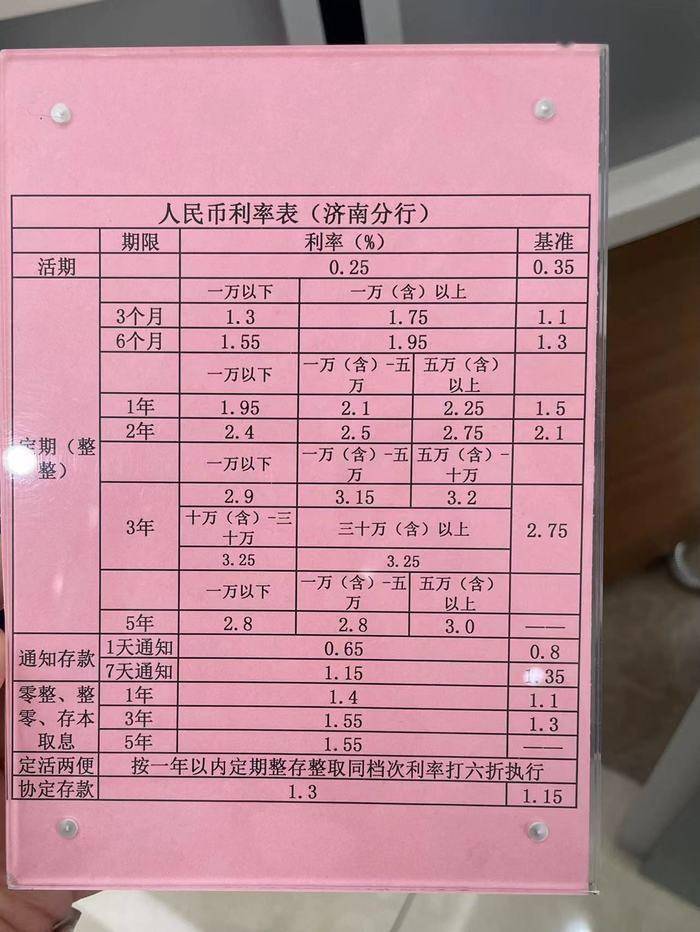 人民币利率表（济南分行）
期限 利率（%） 基准
活期 0.25 0.35
一万以下 一万（含）以上
3个月 1.3 1.75 1.1
6个月 1.55 1.95 1.3
一万以下 一万（含）-五 五万（含）
万 以上
1年 1.95 2.1 2.25 1.5
2年 2.4 2.5 2.75 2.1
定期（整
整）
一万以下 一万（含）-五 五万（含）-
万 十万
2.9 3.15 3.2
3年 十万（含）-三 三十万（含）以上 2.75
十万
3.25 3.25
一万以下 一万（含）-五 五万（含）
万 以上
5年 2.8 2.8 3.0 ——
通知存款 1天通知 0.65 0.8
7天通知 1.15 1.35
零整、整 1年 1.4 1.1
零、存本 3年 1.55 1.3
取息 5年 1.55 ——
定活两便 按一年以内定期整存整取同档次利率打六折执行
协定存款 1.3 1.15